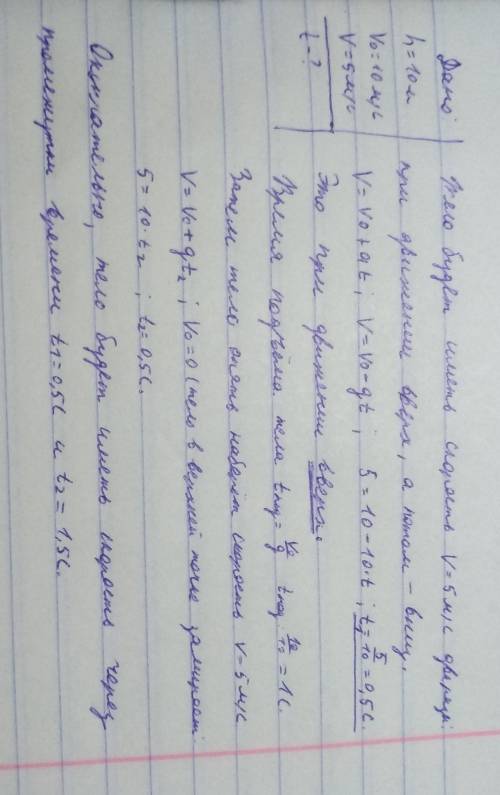 Дано:
h = 10 м
V0 = 10 м/с
V = 5 м/с
t - ?
Тело будет иметь скорость V = 5 м/с дважды:
при движении вверх, а потом – вниз.
V = V0 + at ; V = V0 - gt ; 5 = 10 - 10·t ; t1 = 5/10 = 0,5 с.
Это при движении вверх.
Время подъёма тела tпод = V0/g tпод = 10/10 = 1 с.
Затем тело опять наберёт скорость V = 5 м/с
V = V0 + gt2 ; V0 = 0 (тело в верхней точке замирает).
5 = 10·t2 ; t2 = 0,5 с.
Окончательно, тело будет иметь скорость через
промежутки времени t1 = 0,5 с и t2 = 1,5 с.